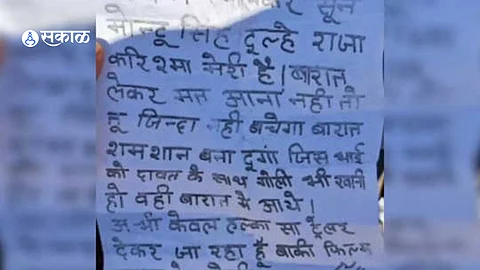 सकाळ
सुन
मोन्टू सिंह दूल्हे राजा
करिश्मा मेरी है। बारात
लेकर मत आना नही तो
तू जिन्दा नही बचेगा बारात
शमशान बना दूंगा जिस भाई
को दावत के साथ गोली भी खानी
हो वही बारात मे आये।
अभी केवल हल्का सा ट्रेलर
देकर जा रहा हूँ बाकी फिल्म